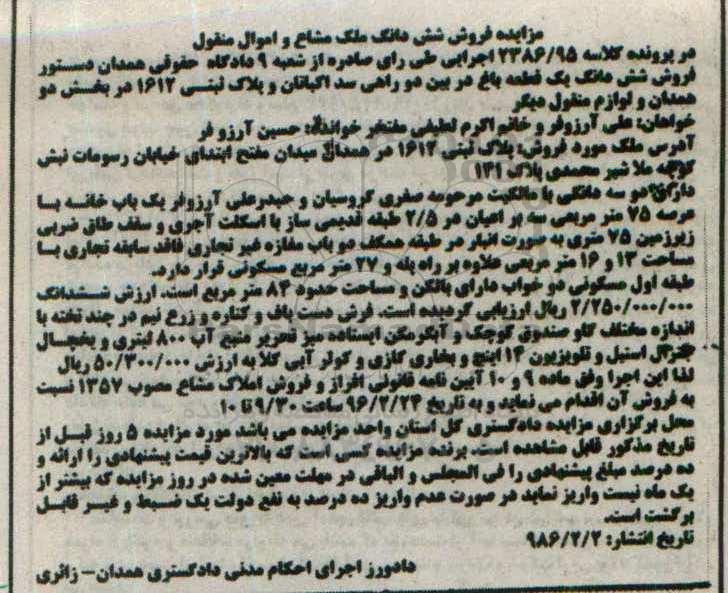 مزایده فروش شش دانگ ملک مشاع و اموال منقول
در پرونده کلاسه ۲۳۸۶/۹۵ اجرایی طی رای صادره از شعبه ۹ دادگاه حقوقی همدان دستور
فروش شش دانگ یک قطعه باغ در بین دو راهی سد اکباتان و پلاک ثبتی ۱۶۱۲ در بخش دو
همدان و لوازم منقول دیگر
خواهان: علی آرزوفر و خانم اکرم لطیفی مفتخر خوانده: حسین آرزو فر
آدرس ملک مورد فروش: پلاک ثبتی ۱۶۱۲ در همدان میدان مفتح ابتدای خیابان رسومات نبش
کوچه ملا شیر محمدی پلاک ۱۳۱
دارای دو سه دانگی با مالکیت مرحومه صغری گروسیان و حیدرعلی آرزوفر یک باب خانه با
عرصه ۷۵ متر مربعی سه بر اعیان در ۲/۵ طبقه قدیمی ساز با اسکلت آجری و سقف طاق ضربی
زیرزمین ۷۵ متری به صورت انبار در طبقه همکف دو باب مغازه غیر تجاری فاقد سابقه تجاری با
مساحت ۱۳ و ۱۶ متر مربعی علاوه بر راه پله و ۲۷ متر مربع مسکونی قرار دارد.
طبقه اول مسکونی دو خواب دارای بالکن و مساحت حدود ۸۴ متر مربع است. ارزش ششدانگ
۲/۲۵۰/۰۰۰/۰۰۰ ریال ارزیابی گردیده است. فرش دست باف و کناره و زرع نیم در چند تخته با
اندازه مختلف گاو صندوق کوچک و آبگرمکن ایستاده میز تحریر منبع آب ۸۰۰ لیتری و یخچال
جنرال استیل و تلویزیون ۱۴ اینچ و بخاری گازی و کولر آبی کلا به ارزش ۵۰/۳۰۰/۰۰۰ ریال
لذا این اجرا وفق ماده ۹ و ۱۰ آیین نامه قانونی افراز و فروش املاک مشاع مصوب ۱۳۵۷ نسبت
به فروش آن اقدام می نماید و به تاریخ ۹۶/۲/۲۴ ساعت ۹/۳۰ تا ۱۰
محل برگزاری مزایده دادگستری کل استان واحد مزایده می باشد مورد مزایده ۵ روز قبل از
تاریخ مذکور قابل مشاهده است. برنده مزایده کسی است که بالاترین قیمت پیشنهادی را ارائه و
ده درصد مبلغ پیشنهادی را فی المجلس و الباقی در مهلت معین شده در روز مزایده که بیشتر از
یک ماه نیست واریز نماید در صورت عدم واریز ده درصد به نفع دولت یک ضبط و غیر قابل
برگشت است.
تاریخ انتشار: ۹۸۶/۲/۲
دادورز اجرای احکام مدنی دادگستری همدان- زائری